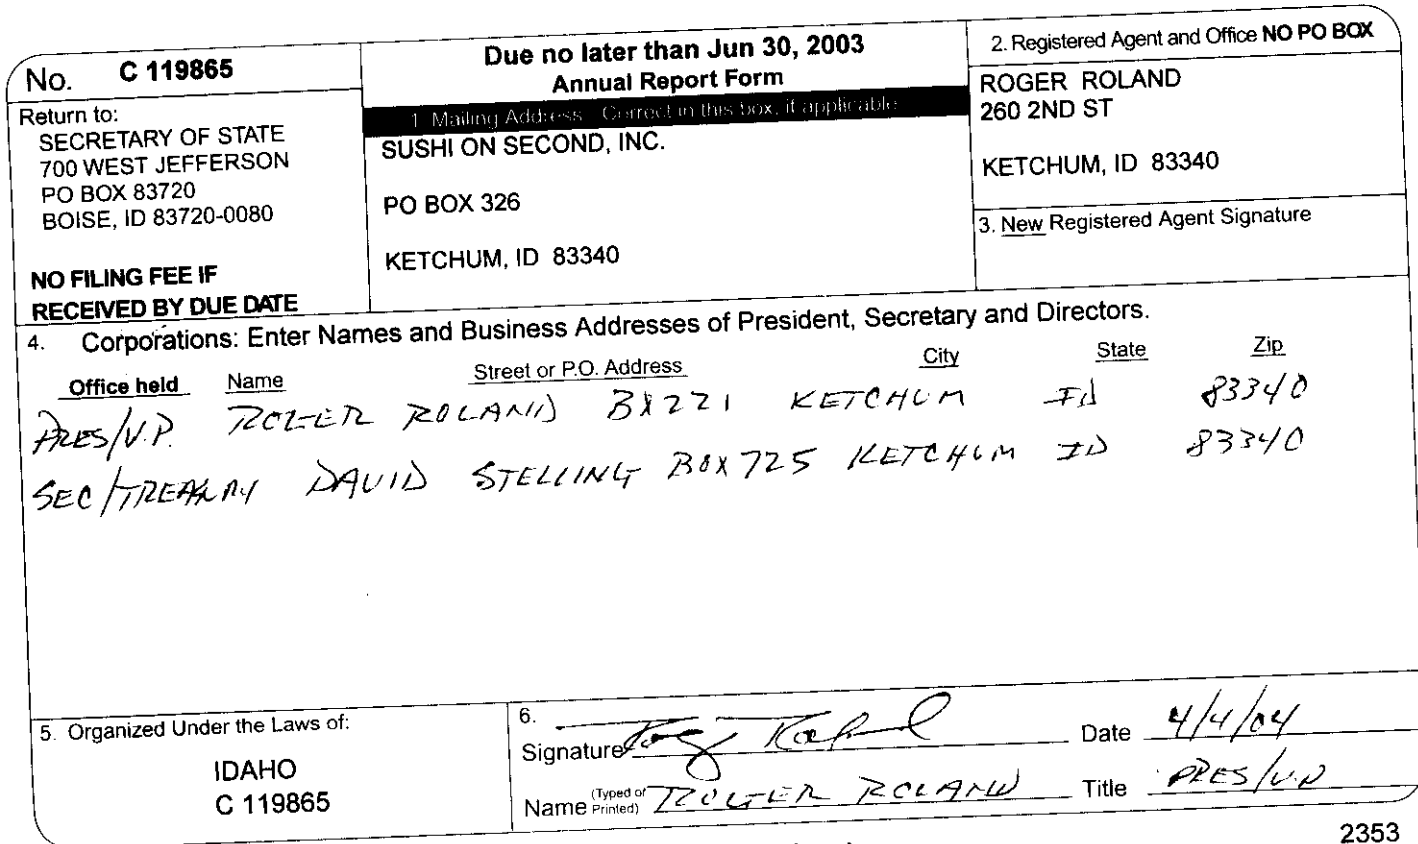 No. C 119865
Return to:
SECRETARY OF STATE
700 WEST JEFFERSON
PO BOX 83720
BOISE, ID 83720-0080
NO FILING FEE IF
RECEIVED BY DUE DATE
Due no later than Jun 30, 2003
Annual Report Form
1. Mailing Address - Correct in this box, if applicable
SUSHI ON SECOND, INC.
PO BOX 326
KETCHUM, ID 83340
2. Registered Agent and Office NO PO BOX
ROGER ROLAND
260 2ND ST
KETCHUM, ID 83340
3. New Registered Agent Signature
4. Corporations: Enter Names and Business Addresses of President, Secretary and Directors.
Office held Name Street or P.O. Address City State Zip
PRES/V.P. ROGER ROLAND BX 221 KETCHUM ID 83340
SEC/ DAVID STELLING BOX 725 KETCHUM ID 83340
5. Organized Under the Laws of:
IDAHO
C 119865
6.
Signature Date 4/4/04
Name (Typed or Printed) ROGER ROLAND Title PRES/V.P
2353